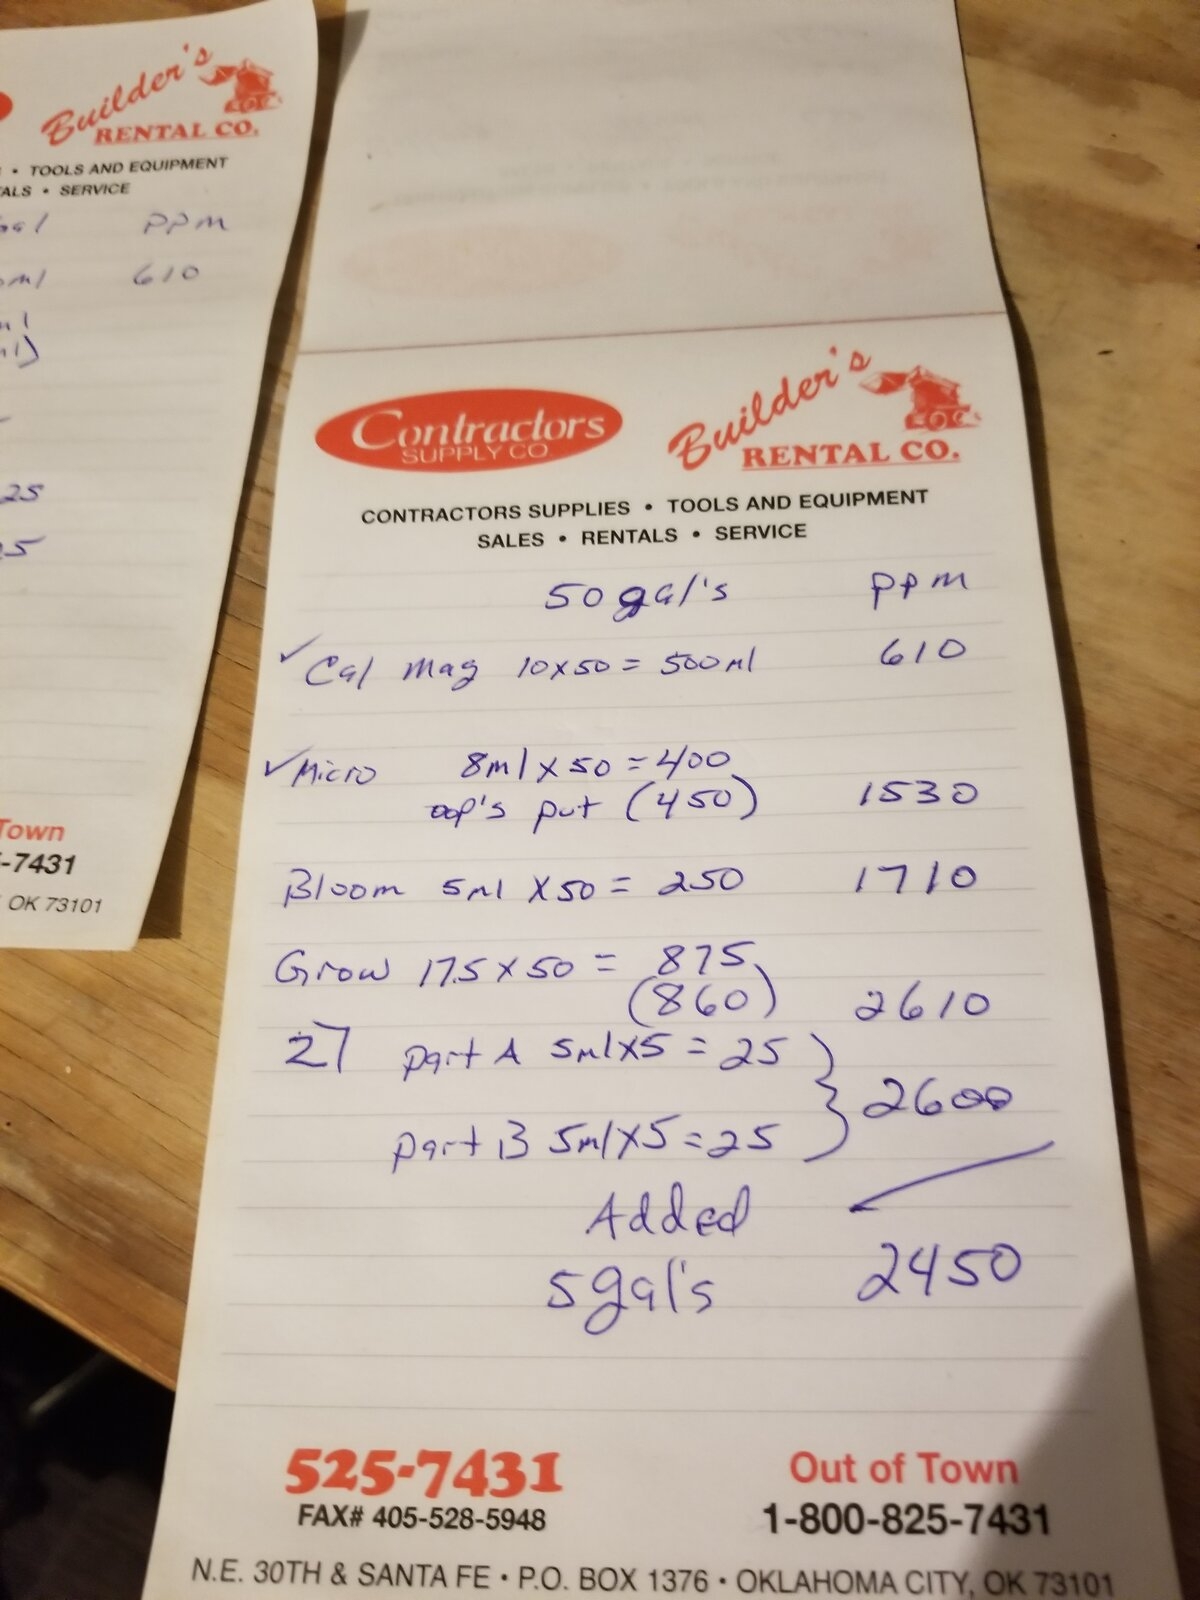 Builder's
RENTAL CO.
• TOOLS AND EQUIPMENT
ALS • SERVICE
gal PPM
ml 610
ml
ml)
25
5
Town
-7431
OK 73101
Contractors
SUPPLY CO
Builder's
RENTAL CO.
CONTRACTORS SUPPLIES • TOOLS AND EQUIPMENT
SALES • RENTALS • SERVICE
50 gal's PPM
✓ Cal Mag 10x50 = 500ml 610
✓ Micro 8ml x 50 = 400
oop's put (450) 1530
Bloom 5ml x 50 = 250 1710
Grow 17.5 x 50 = 875
(860) 2610
27 part A 5mlx5 = 25
} 2600
part B 5mlx5 = 25
Added
5gal's 2450
525-7431
FAX# 405-528-5948
Out of Town
1-800-825-7431
N.E. 30TH & SANTA FE • P.O. BOX 1376 • OKLAHOMA CITY, OK 73101